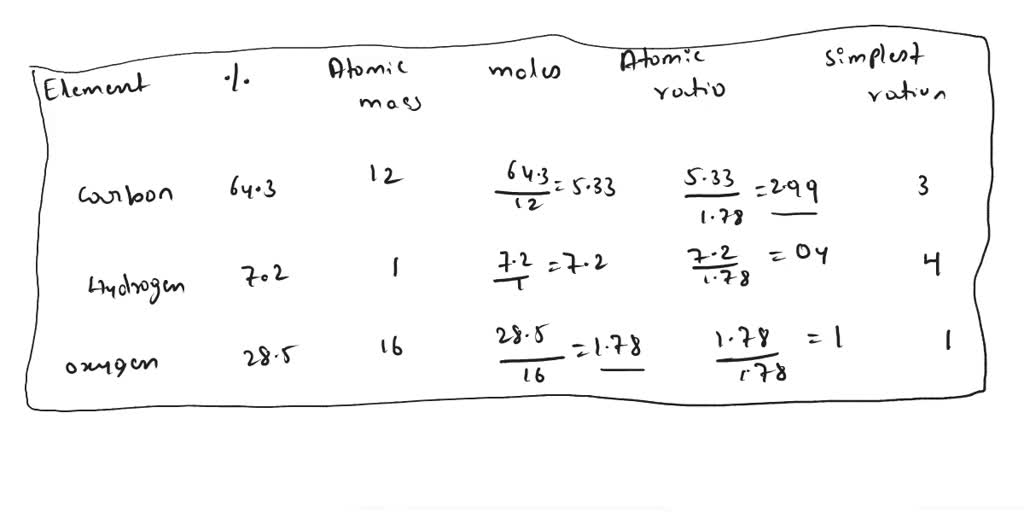 Element % Atomic mass moles Atomic ratio simplest ration
Carbon 64.3 12 64.3/12 = 5.33 5.33/1.78 = 2.99 3
Hydrogen 7.2 1 7.2/1 = 7.2 7.2/1.78 = 04 4
oxygen 28.5 16 28.5/16 = 1.78 1.78/1.78 = 1 1